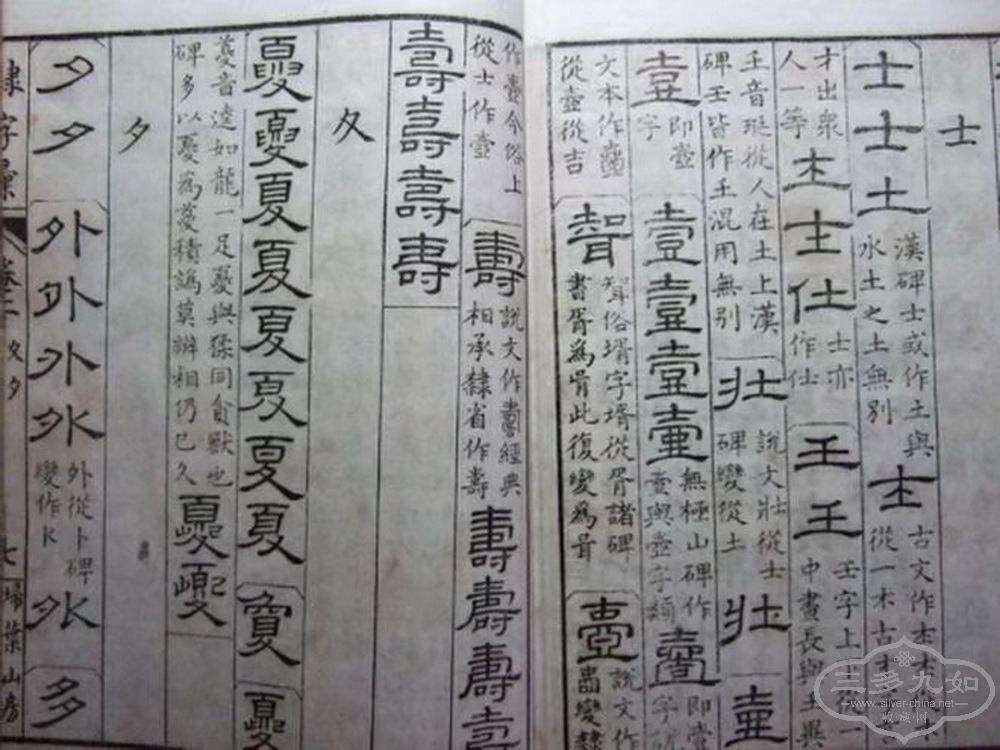 士
士士土
漢碑士或作土與
水土之土無別
古文作
從一木古
才出眾
人一等
仕
士亦
作仕
王王
壬字上
中畫長與王異
音珽從人在土上漢
碑壬皆作王混用無別
壯
說文壯從士
碑變從土
壯壺
壹
即壺
字
壹壹壹壷
無極山碑作
壺與壺字類
壹
即壹
字
文本作壺
從壺從吉
壻
聟俗壻字壻從胥諸碑
書胥為咠此復變為咠
壺
說文作
變隸
作壺今俗上
從士作壺
壽
說文作經典
相承隸省作壽
壽壽壽壽
壽壽壽壽
夊
夏夏夏夏夏夏夏夏夐夔
夔音逵如龍一足夔與猱同貪獸也
碑多以夔為夒積譌莫辨相仍已久
夔夔
夕
夕夕外外外外
外從卜碑
變作K
外多
隸字彙 卷二 夊夕 七 掃葉山房
三多九如
www.silver-china.net
收藏网